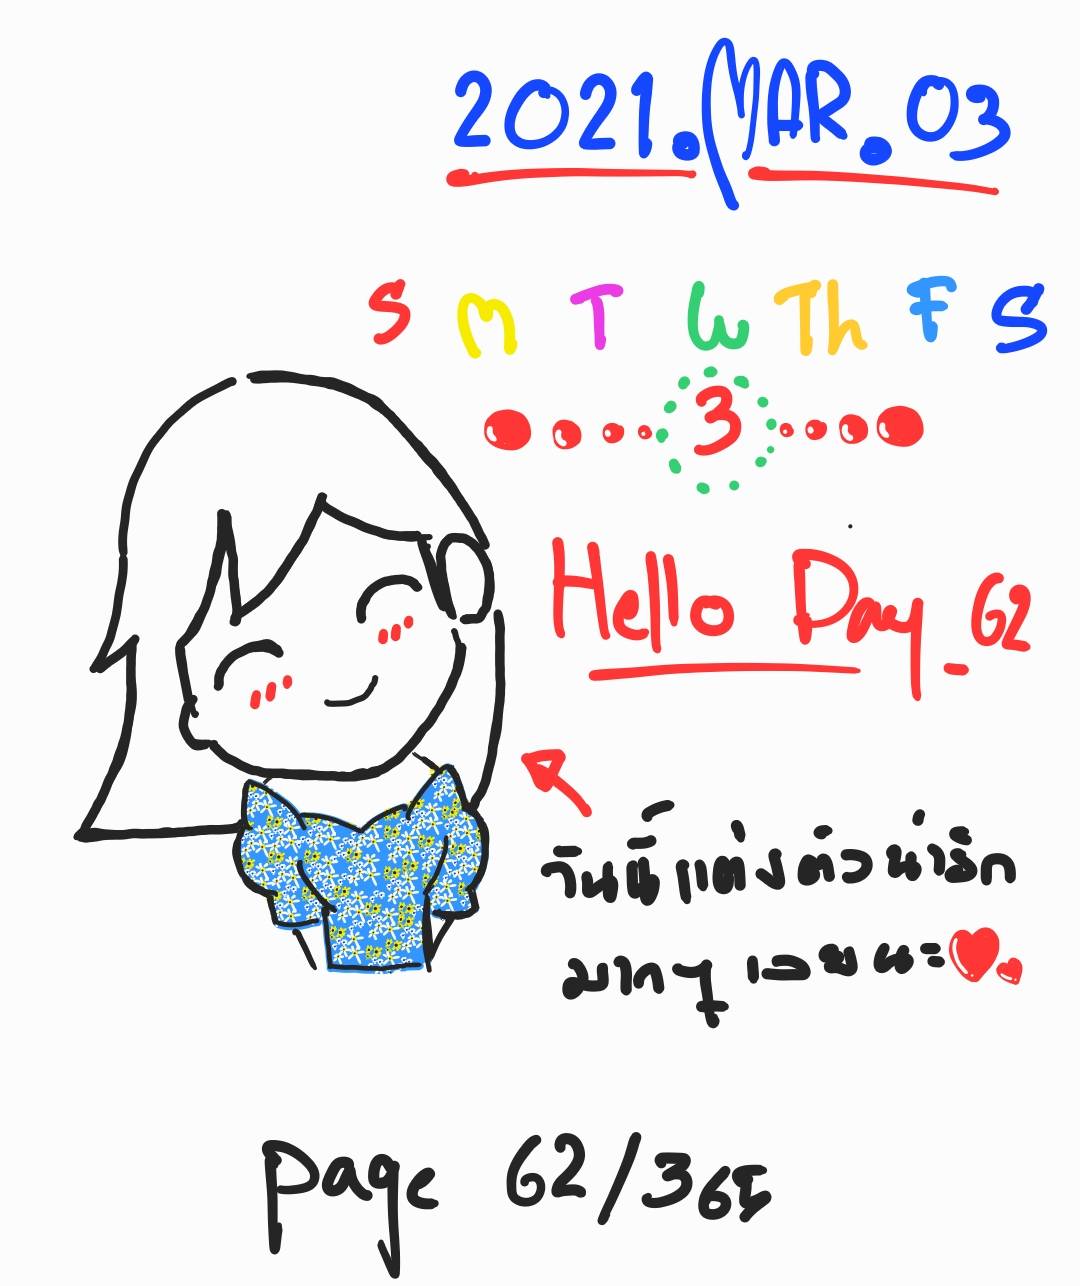 2021.MAR.03
S M T W Th F S
3
Hello Day_62
วันนี้แต่งตัวน่ารัก
มากๆ เลยนะ
page 62/365